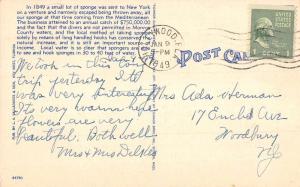 In 1849 a small lot of sponge was sent to New York
as a venture and narrowly escaped being thrown away, all
our sponge at that time coming from the Mediterranean.
The business attained to an annual catch of $750,000.00
but the dividers are not permitted to sponge in Monroe
County waters, and the local method of taking sponges
solely by means of long handled hooks has conserved the
natural increase, and it is still an important source of
income. Local water is so clear that sponges can easily
be seen and hooks sponges in 30 to 40 feet of water.
We took in this town
trip yesterday. It
was very interesting
Its very warm here.
Flowers are very
beautiful. Both well
Mrs & Mrs
POST CARD
JAN 9
PM
1949
Mrs Ada Herman
17 Euclid Ave
Woodbury
NJ